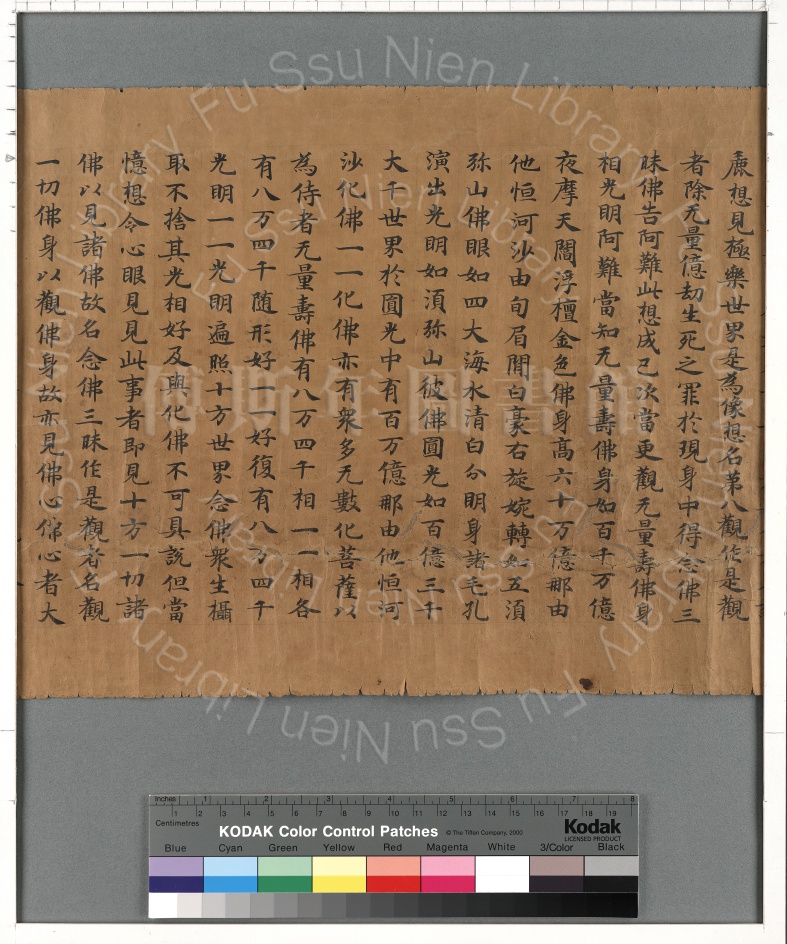 麁想見極樂世界是為像想名第八觀作是觀
者除无量億劫生死之罪於現身中得念佛三
昧佛告阿難此想成已次當更觀无量壽佛身
相光明阿難當知无量壽佛身如百千万億
夜摩天閻浮檀金色佛身高六十万億那由
他恒河沙由旬眉間白豪右旋婉轉如五湏
弥山佛眼如四大海水清白分明身諸毛孔
演出光明如湏弥山彼佛圓光如百億三千
大千世界於圓光中有百万億那由他恒河
沙化佛一一化佛亦有衆多无數化菩薩以
為侍者无量壽佛有八万四千相一一相各
有八万四千随形好一一好復有八万四千
光明一一光明遍照十方世界念佛衆生攝
取不捨其光相好及與化佛不可具說但當
憶想令心眼見見此事者即見十方一切諸
佛以見諸佛故名念佛三昧作是觀者名觀
一切佛身以觀佛身故亦見佛心佛心者大
傅斯年圖書館
Fu Ssu Nien Library
Inches 1 2 3 4 5 6 7 8
Centimetres 1 2 3 4 5 6 7 8 9 10 11 12 13 14 15 16 17 18 19
KODAK Color Control Patches © The Tiffen Company, 2000
Kodak
LICENSED PRODUCT
Blue Cyan Green Yellow Red Magenta White 3/Color Black